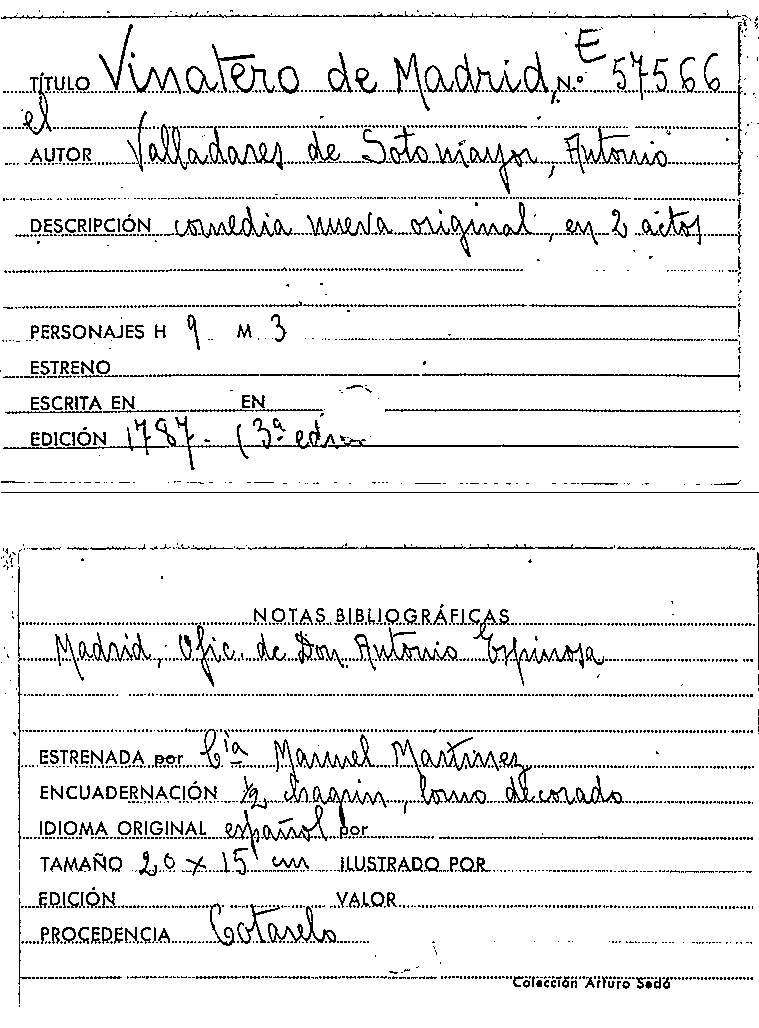 TÍTULO Vinatero de Madrid, N.º E 57566
el
AUTOR Valladares de Sotomayor, Antonio
DESCRIPCIÓN comedia nueva original, en 2 actos
PERSONAJES H 9 M 3
ESTRENO
ESCRITA EN EN
EDICIÓN 1787. (3ª edn
NOTAS BIBLIOGRÁFICAS
Madrid, Ofic. de Don Antonio Espinosa
ESTRENADA por Cía Manuel Martinez
ENCUADERNACIÓN ½ chagrin, lomo decorado
IDIOMA ORIGINAL español por
TAMAÑO 20 x 15 cm ILUSTRADO POR
EDICIÓN VALOR
PROCEDENCIA Cotarelo
Colección Arturo Sedó